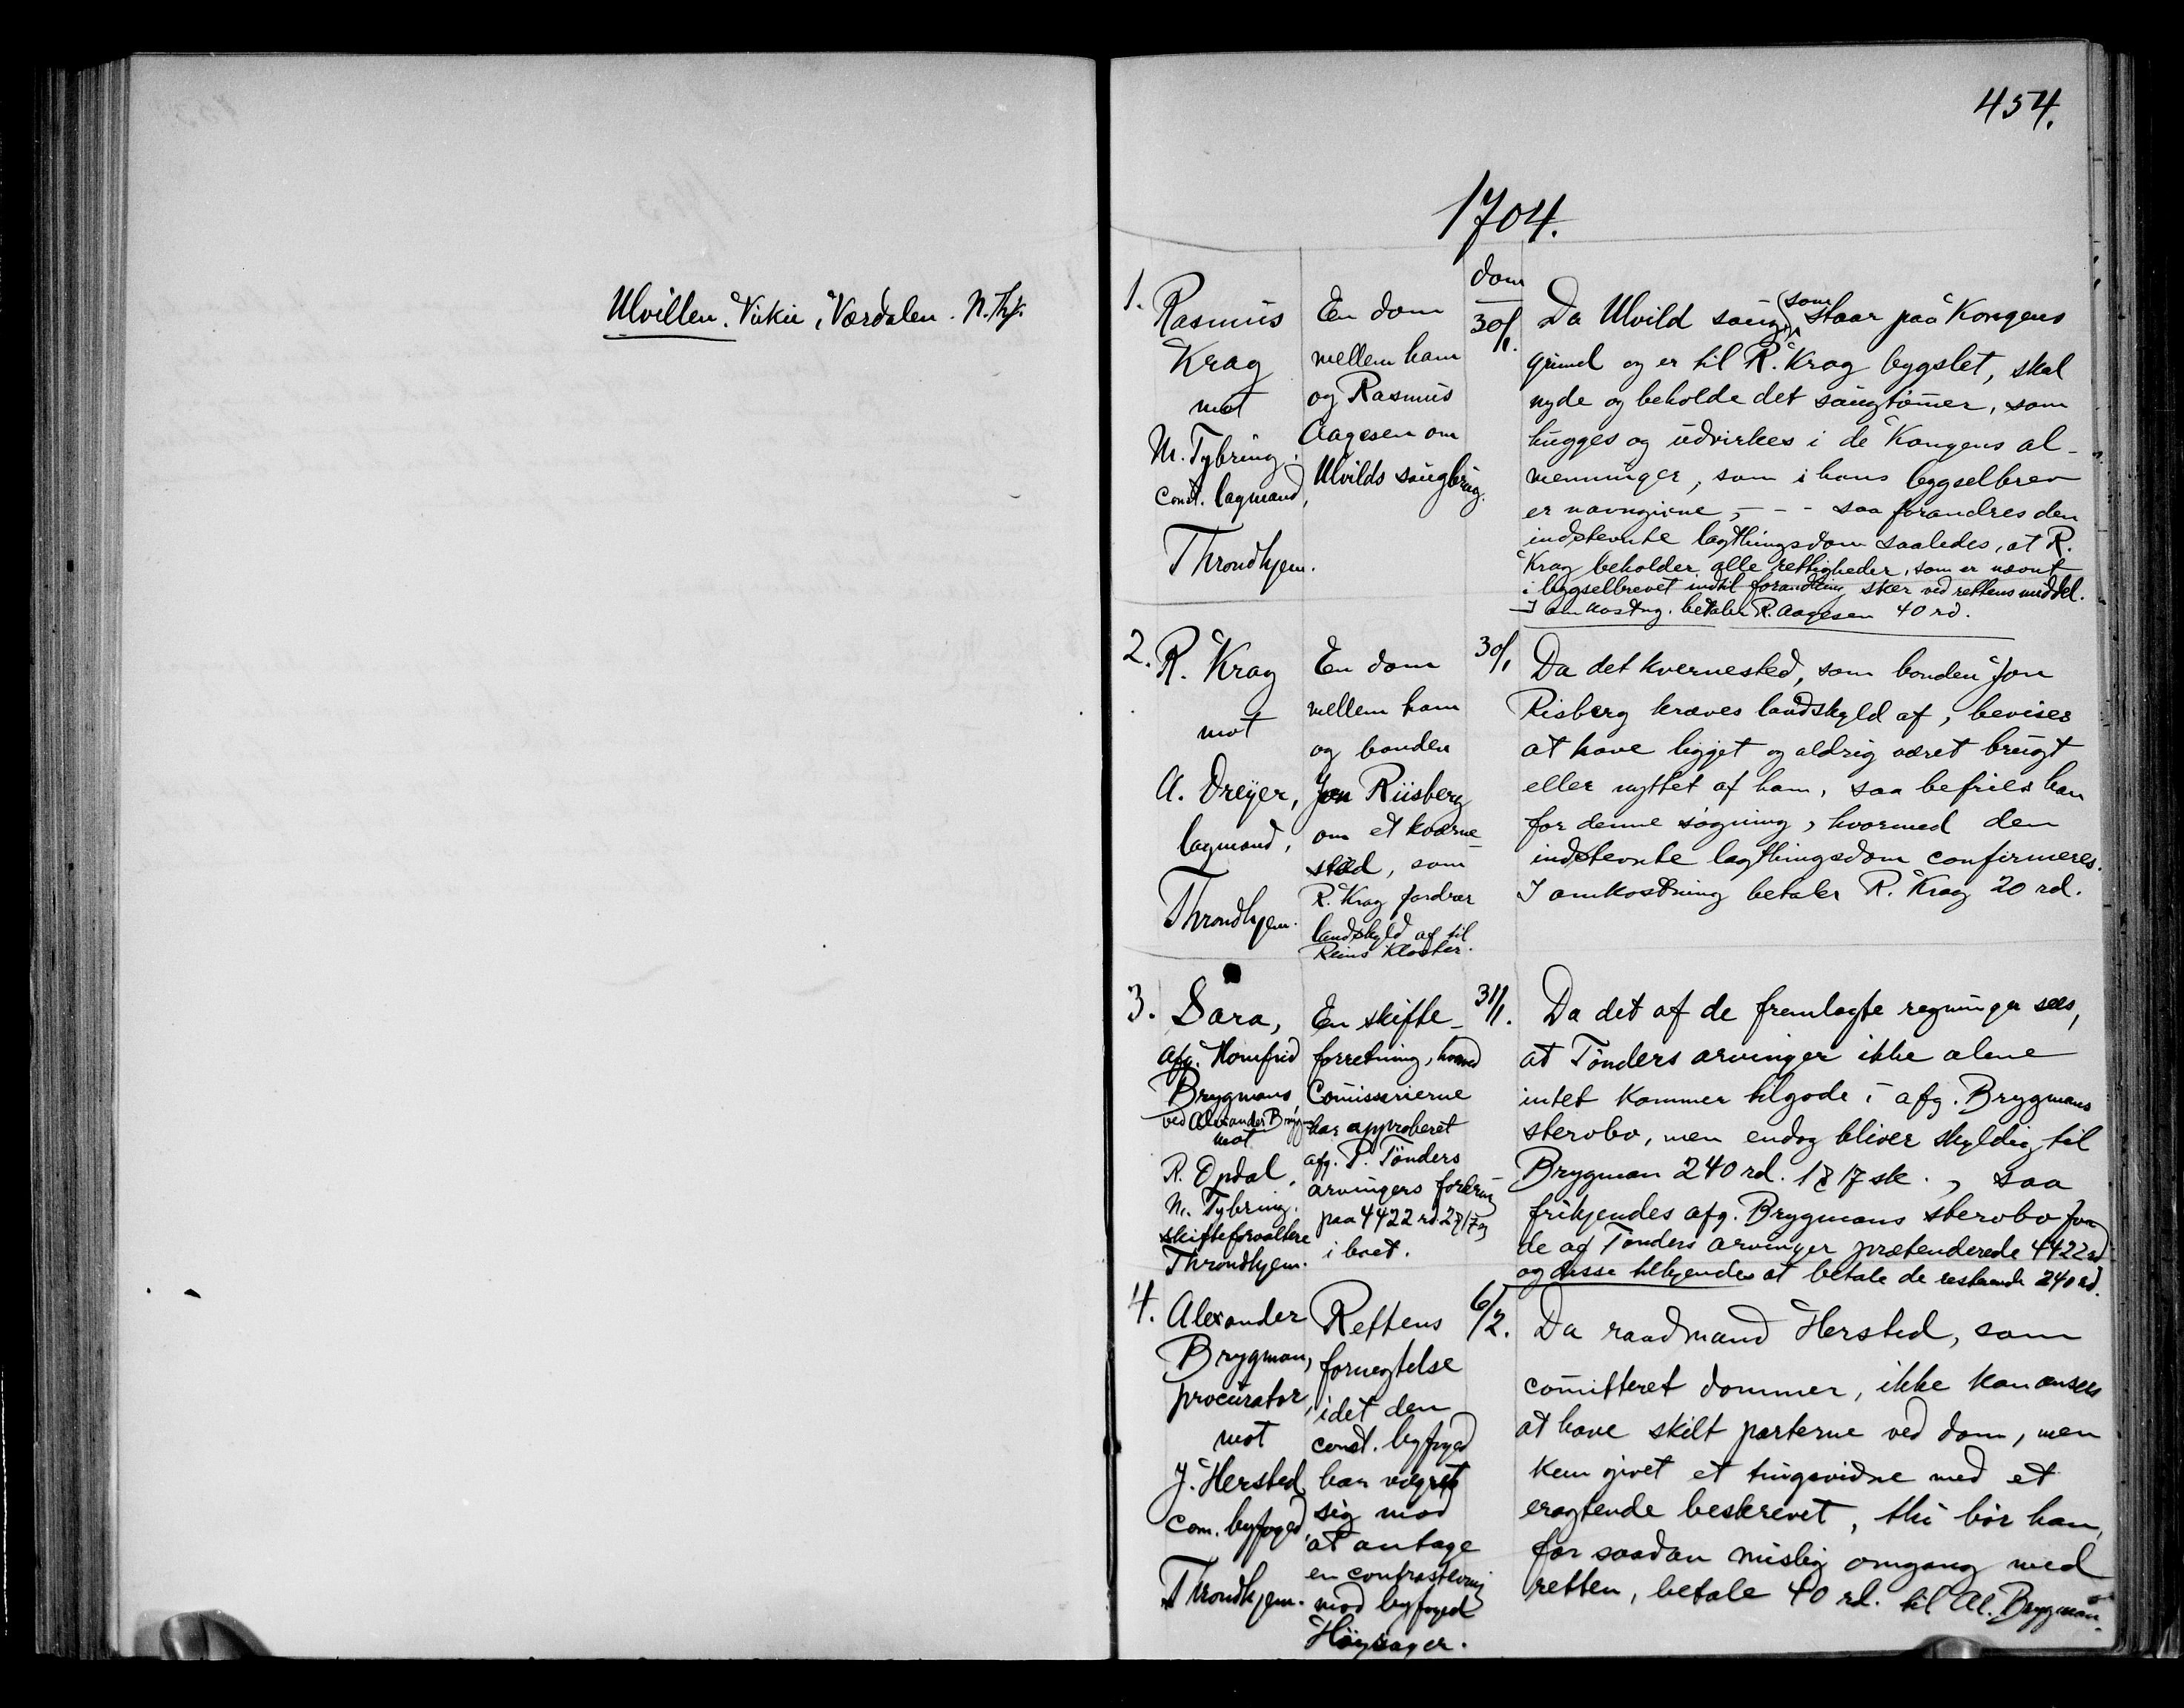 Ulvillen. Vukù, Værdalen. N. Thj.
454.
1704.
dom
1.
Rasmus
Krag
mot
M. Tybring.
Const. lagmand,
Throndhjem.
En dom
mellem ham
og Rasmus
Aagesen om
Ulvilds saugbrug.
30/1.
Da Ulvild saug, som staar paa Kongens
grund og er til R. Krag bygslet, skal
nyde og beholde det saugtømer, som
hugges og udvirkes i de Kongens al-
menninger, som i hans bygselbrev
er navngivne, - - - saa forandres den
indstevnte lagthingsdom saaledes, at R.
Krag beholder alle rettigheder, som er nævnt
i bygselbrevet indtil forandring sker ved rettens middel.
I omkostng. betaler R. Aagesen 40 rd.
2.
R. Krag
mot
A. Dreyer,
lagmand,
Throndhjem.
En dom
mellem ham
og bonden
Jon Riisberg
om et kværne-
sted, som
R. Krag fordrer
landskyld af til
Reins Kloster.
30/1
Da det kvernested, som bonden Jon
Risberg kræves landskyld af, bevises
at have ligget og aldrig været brugt
eller nyttet af ham, saa befries han
for denne søgning, hvormed den
indstevnte lagthingsdom confirmeres.
I omkostning betaler R. Krag 20 rd.
3.
Sara,
afg. Homfrid
Brygmans
ved Alexander Brygman
mot
R. Opdal,
M. Tybring.
skifteforvaltere
Throndhjem.
En skifte-
forretning, hvorved
Comissarierne
har approberet
afg. P. Tønders
arvingers fordring
paa 4422 rd.
i boet.
31/1.
Da det af de fremlagte regninger sees,
at Tønders arvinger ikke alene
intet kommer tilgode i afg. Brygmans
sterobo, men endog bliver skyldig til
Brygman 240 rd. 17 sk., saa
frikjendes afg. Brygmans sterobo for
de af Tønders arvinger prætenderede 4422 rd
og disse tilkjendes at betale de resterende 240 rd.
4.
Alexander
Brygman,
procurator,
mot
J. Hersted
com. byfoged,
Throndhjem.
Rettens
fornegtelse
idet den
const. byfoged
har vægret
sig mod
at antage
en contrastevning
mod byfoged
Høysager.
6/2.
Da raadmand Hersted, som
comitteret dommer, ikke kan ansees
at have skilt parterne ved dom, men
kun givet et tingsvidne med et
eragtende beskrevet, thi bør han,
for saadan mislig omgang med
retten, betale 40 rd. til Al. Brygman.